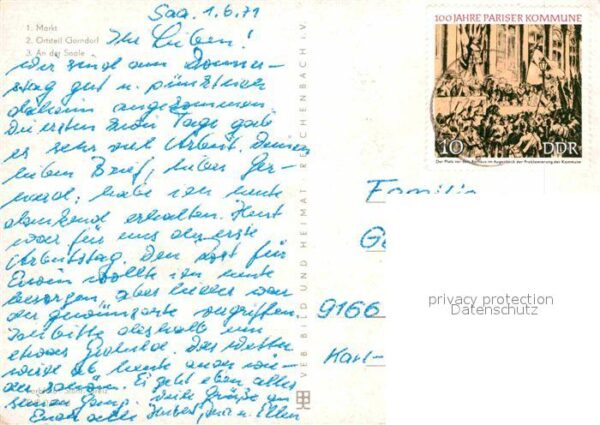 Saa. 1.6.71
1. Markt
2. Ortsteil Gorndorf
3. An der Saale
Ihr Lieben!
Wir sind am Donners-
tag gut u. pünktlich
daheim angekommen.
Die ersten zwei Tage gab
es sehr viel Arbeit. Deinen
lieben Brief, lieber Ger-
hard, habe ich heute
dankend erhalten. Heut
war für uns der erste
Arbeitstag. Den für
Erwin wollte ich heute
besorgen, aber leider war
die gewünschte vergriffen.
Ich bitte deshalb um
etwas Geduld. Das Wetter
wird ab heute auch wie-
der schön. Es geht eben alles
seinen Gang. Viele Grüße an
Euch alle u. Ellen
VEB BILD UND HEIMAT REICHENBACH i. V.
100 JAHRE PARISER KOMMUNE
10 DDR
Der Platz vor dem Rathaus im Augenblick der Proklamierung der Kommune
Familie
9166
Karl-
privacy protection
Datenschutz